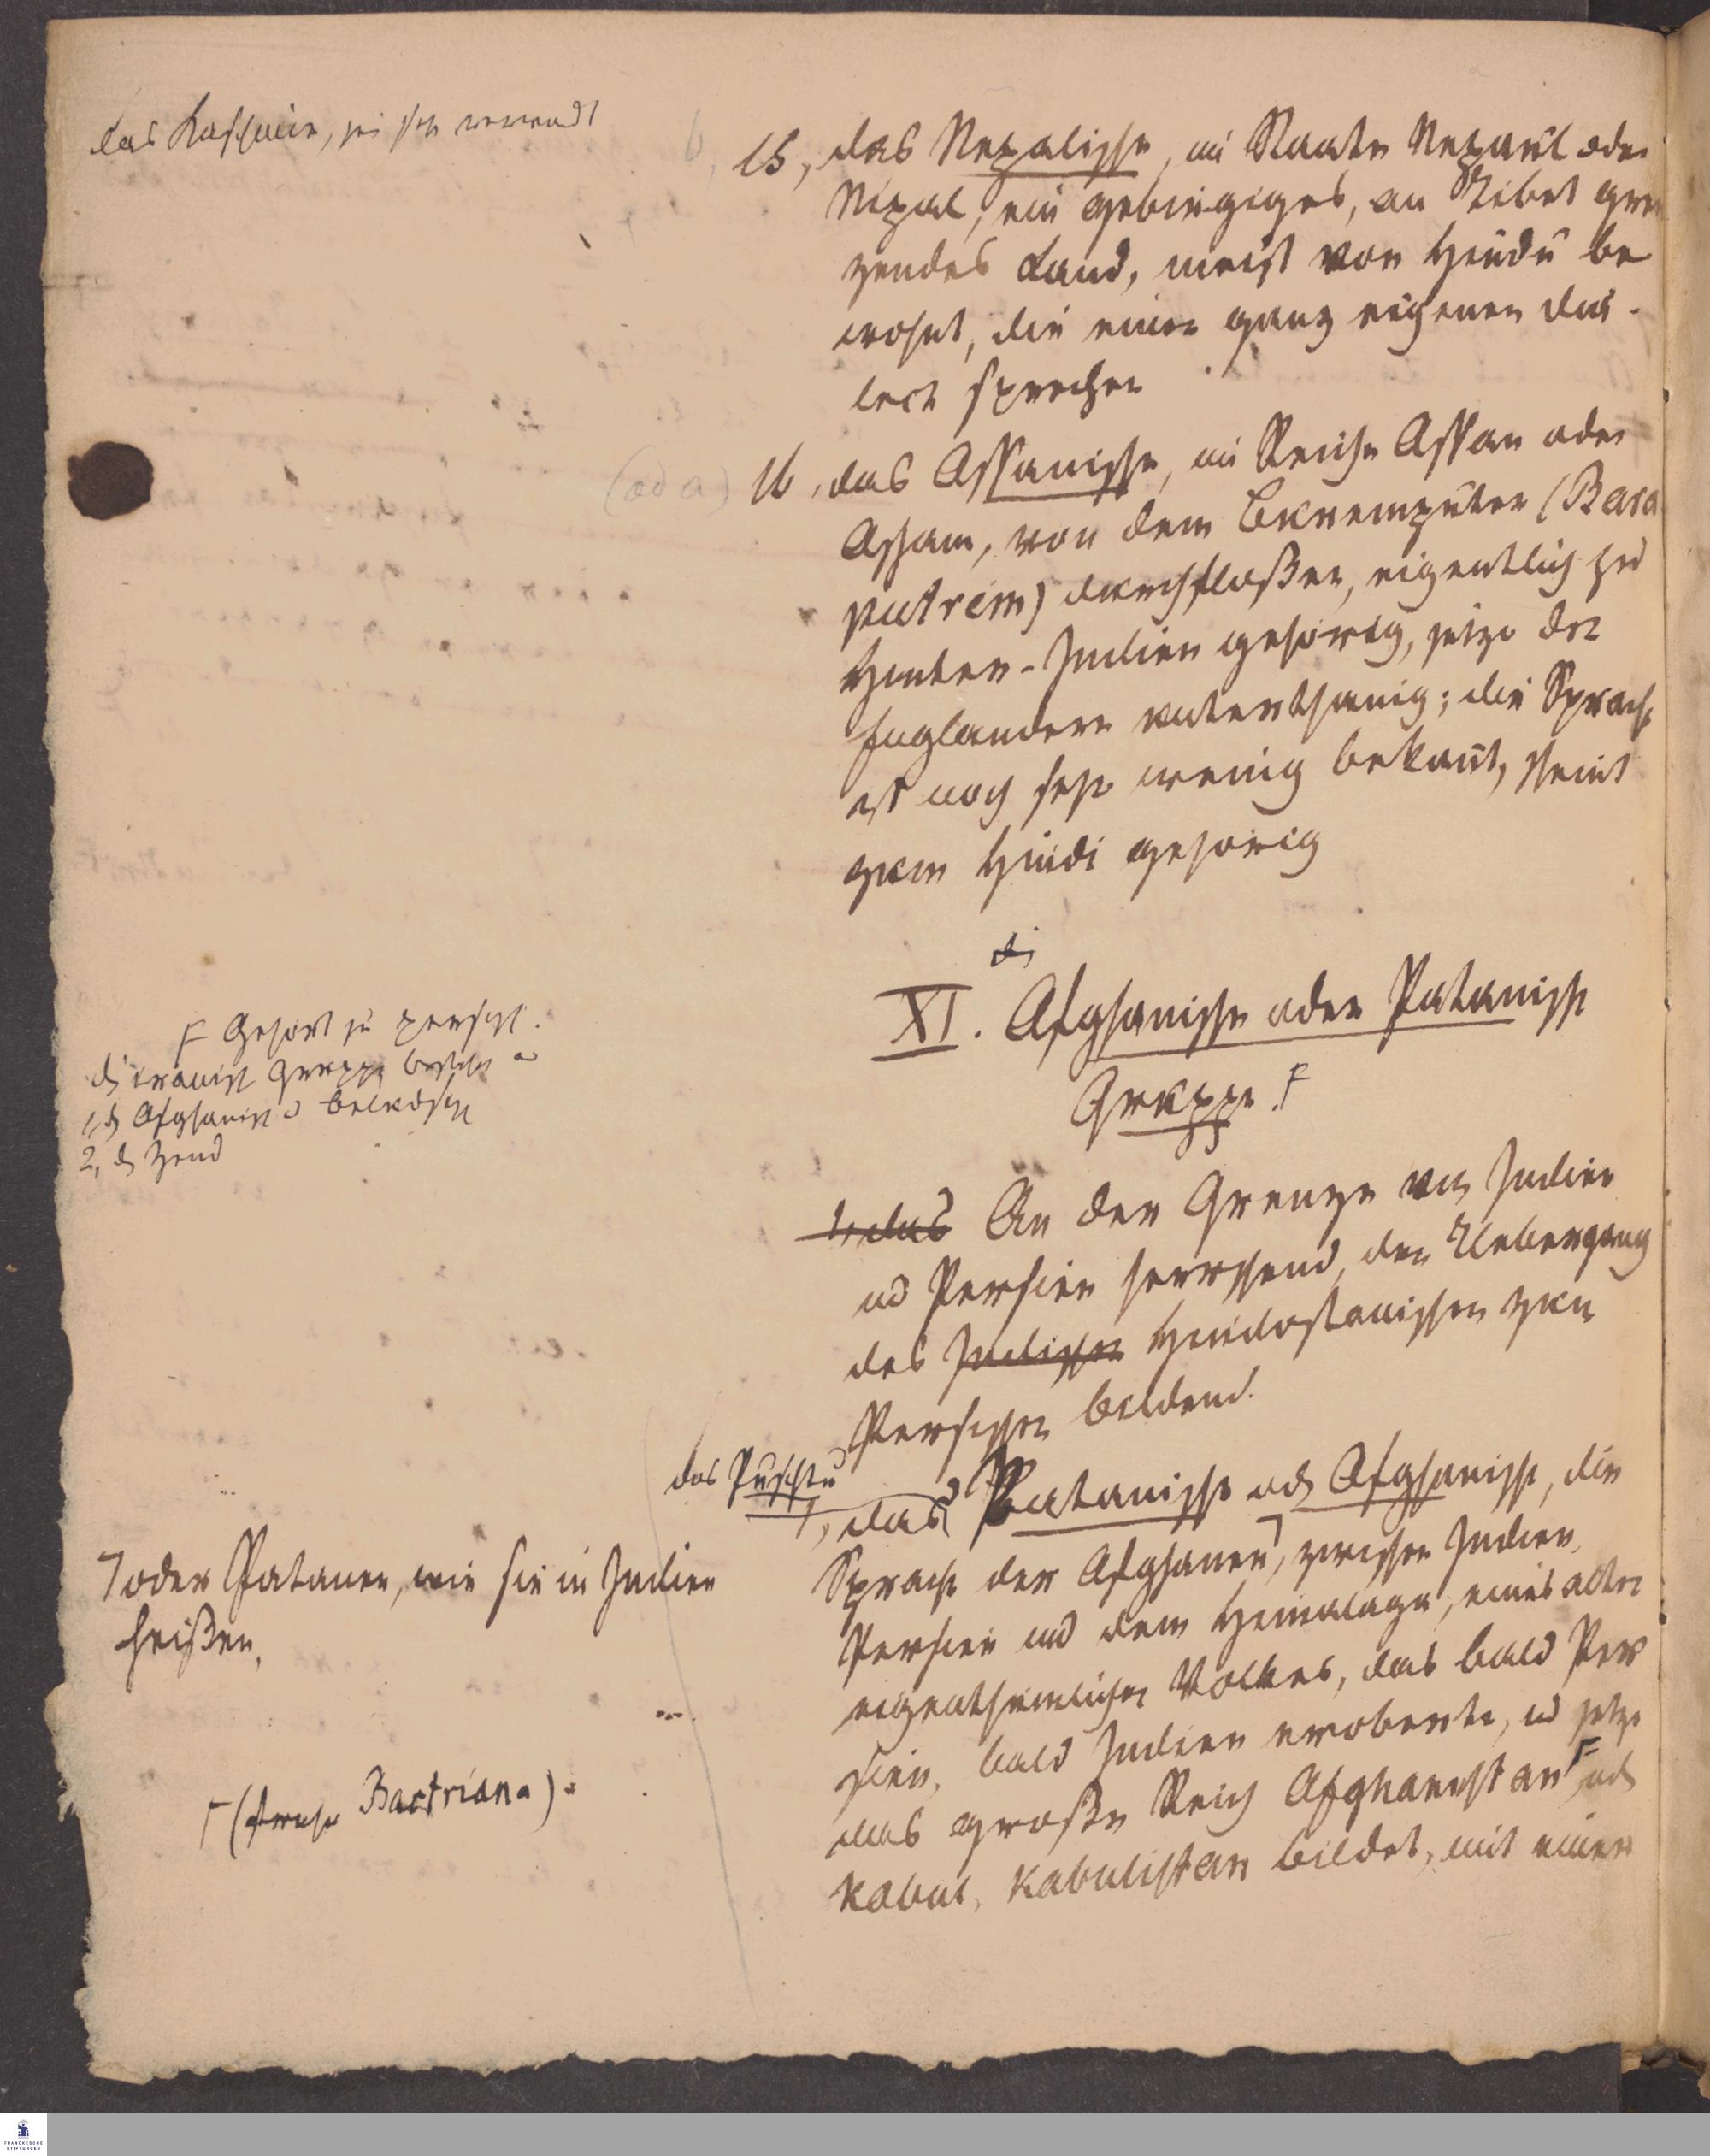 das Kaschmir, sei sehr verwandt
15, das Nepalische, im Staate Nepaul oder
Nipal, ein gebirgiges, an Tibet gren
zendes Land, meist von Hindu be
wohnt, die einen ganz eigenen Dia-
lect sprechen
(ad a) 16, das Assanische, im Reiche Assan oder
Assam, von dem Burremputer (Bara
putrem) durchfloßen, eigentlich zu
Hinter-Indien gehörig, jetzt den
Engländern unterthänig; die Sprache
ist noch sehr wenig bekannt, scheint
zum Hindi gehörig
die
XI. Afghanische oder Patanische
Gruppe. F
F Gehört zu persisch.
die iranisch Gruppe besteht
1, d Afghanisch u Beludsch
2, d Zend
1, das An der Grenze von Indien
und Persien herrschend, den Uebergang
des Indischen Hindostanischen zum
Persischen bildend.
das Puschtu
1, das Patanische od Afghanische, die
Sprache der Afghanen ⌉, zwischen Indien,
Persien und dem Himalaya, eines alten
eigenthümlichen Volkes, das bald Per
sien, bald Indien eroberte, und jetzt
das große Reich Afghanistan F, od
Kabul, Kabulistan bildet, mit einer
⌉ oder Patanen, wie sie in Indien
heißen,
F (früher Bactriana)
FRANCKESCHE
STIFTUNGEN